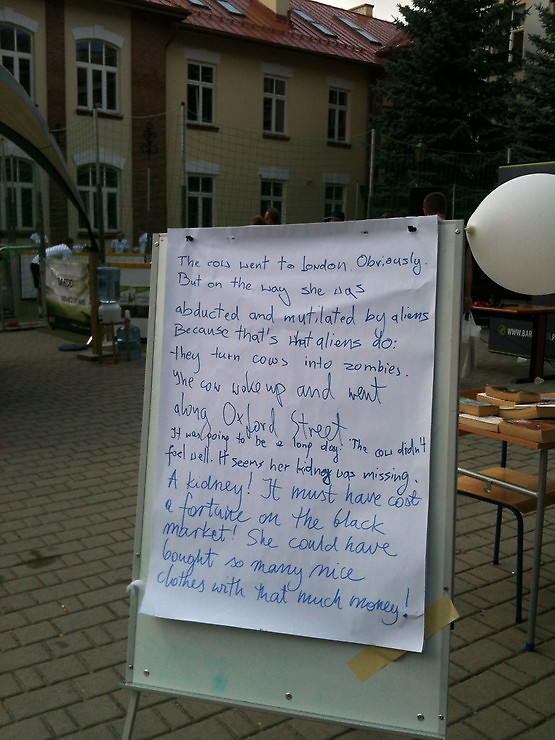 The cow went to London. Obviously.
But on the way she was
abducted and mutilated by aliens
Because that's what aliens do:
they turn cows into zombies.
The cow woke up and went
along Oxford Street.
It was going to be a long day. The cow didn't
feel well. It seems her kidney was missing.
A kidney! It must have cost
a fortune on the black
market! She could have
bought so many nice
clothes with that much money!
WWW.BAR